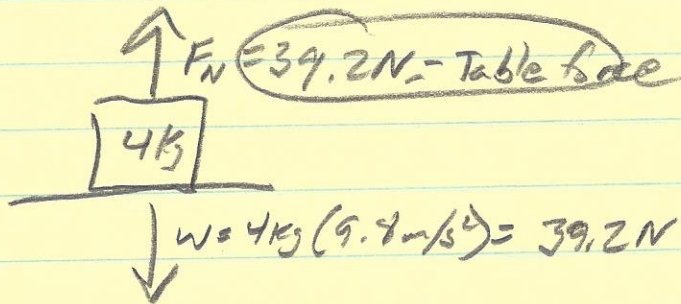 F_N = 39.2N = Table force
4Kg
W = 4Kg (9.8m/s²) = 39.2N